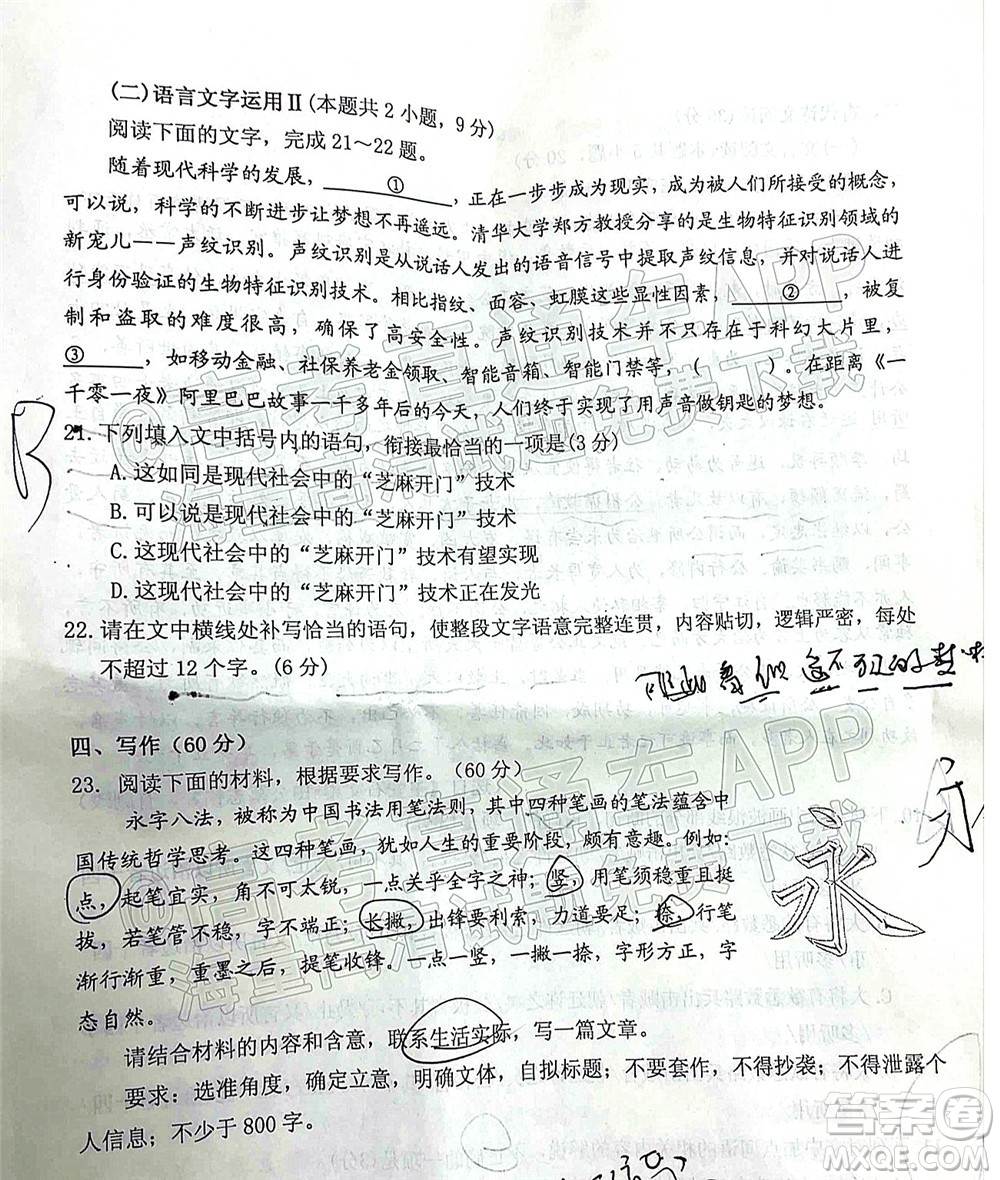 (二)语言文字运用Ⅱ(本题共2小题,9分)
阅读下面的文字,完成21～22题。
随着现代科学的发展,____①____,正在一步步成为现实,成为被人们所接受的概念,
可以说,科学的不断进步让梦想不再遥远。清华大学郑方教授分享的是生物特征识别领域的
新宠儿——声纹识别。声纹识别是从说话人发出的语音信号中提取声纹信息,并对说话人进
行身份验证的生物特征识别技术。相比指纹、面容、虹膜这些显性因素,____②____,被复
制和盗取的难度很高,确保了高安全性。声纹识别技术并不只存在于科幻大片里,
③____,如移动金融、社保养老金领取、智能音箱、智能门禁等,(    )。在距离《一
千零一夜》阿里巴巴故事一千多年后的今天,人们终于实现了用声音做钥匙的梦想。
B
21.下列填入文中括号内的语句,衔接最恰当的一项是(3分)
A.这如同是现代社会中的“芝麻开门”技术
B.可以说是现代社会中的“芝麻开门”技术
C.这现代社会中的“芝麻开门”技术有望实现
D.这现代社会中的“芝麻开门”技术正在发光
22.请在文中横线处补写恰当的语句,使整段文字语意完整连贯,内容贴切,逻辑严密,每处
不超过12个字。(6分)
四、写作(60分)
23. 阅读下面的材料,根据要求写作。(60分)
永字八法,被称为中国书法用笔法则,其中四种笔画的笔法蕴含中
国传统哲学思考。这四种笔画,犹如人生的重要阶段,颇有意趣。例如:
点,起笔宜实,角不可太锐,一点关乎全字之神;竖,用笔须稳重且挺
拔,若笔管不稳,字不端正;长撇,出锋要利索,力道要足;捺,行笔
渐行渐重,重墨之后,提笔收锋。一点一竖,一撇一捺,字形方正,字
态自然。
永
请结合材料的内容和含意,联系生活实际,写一篇文章。
要求:选准角度,确定立意,明确文体,自拟标题;不要套作,不得抄袭;不得泄露个
人信息;不少于800字。
@高考直通车APP
海量高清试题免费下载
@高考直通车APP
海量高清试题免费下载
答案卷